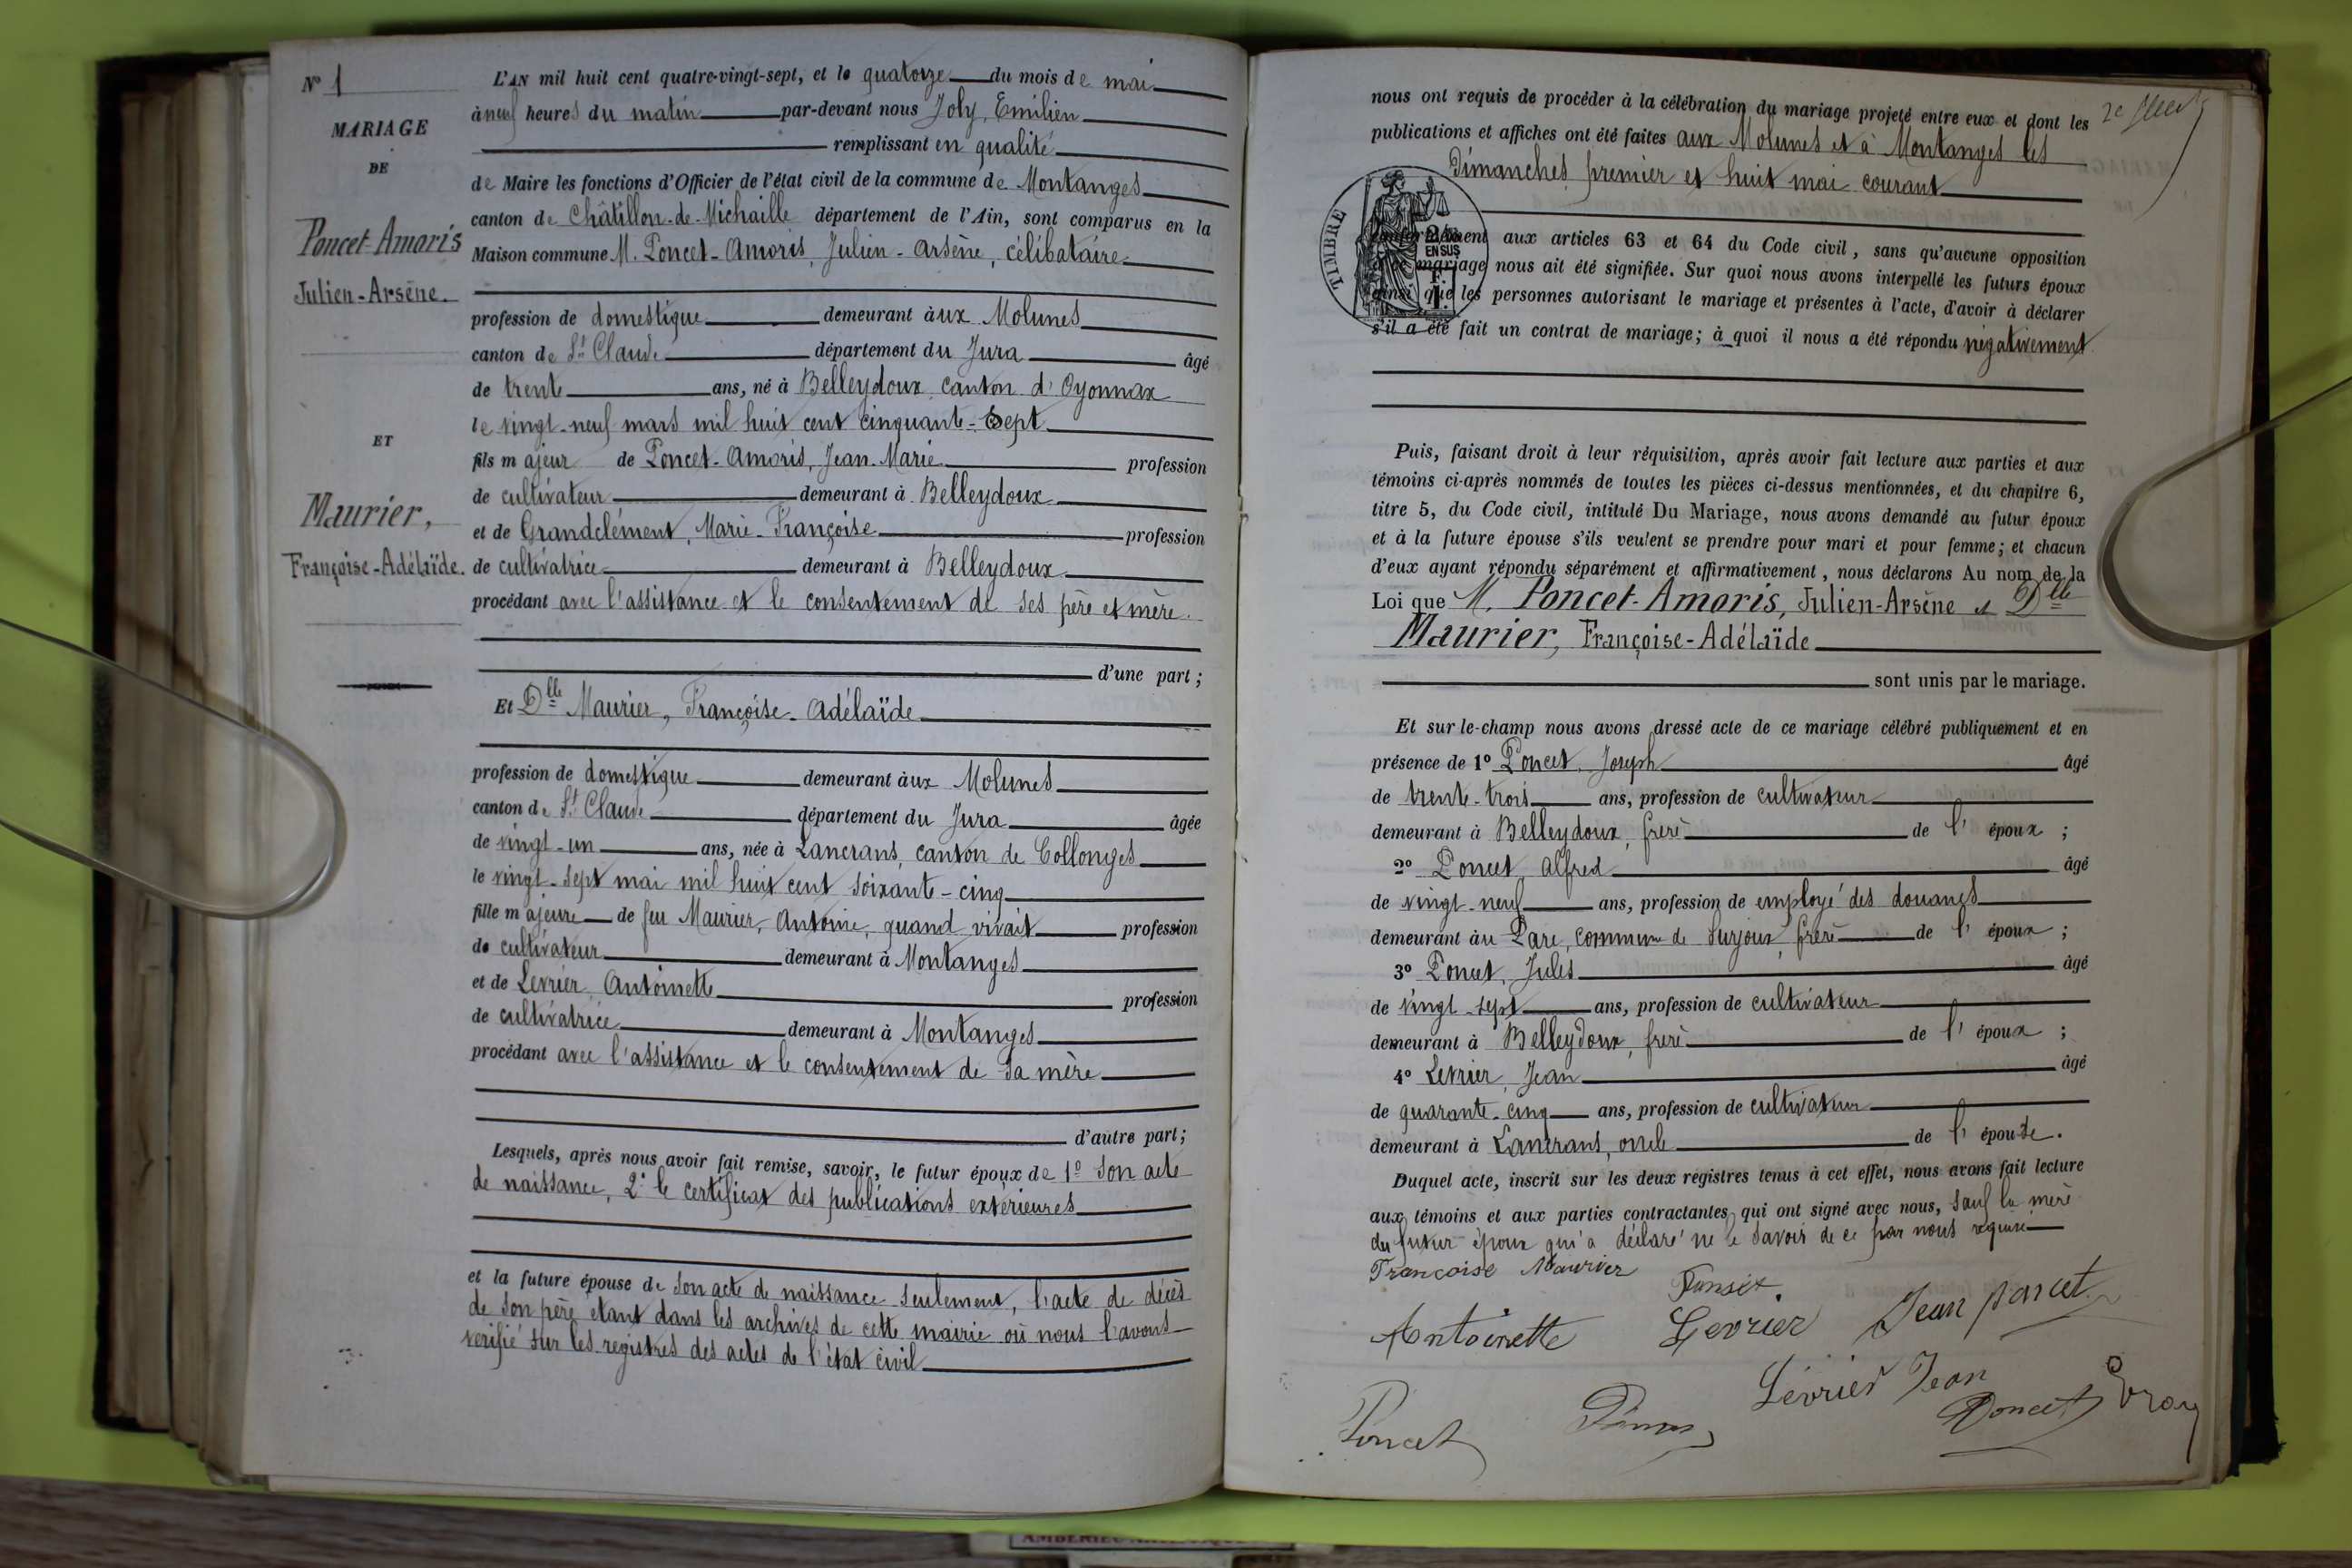 N° 1
MARIAGE
DE
Poncet-Amoris
Julien-Arsène.
ET
Maurier,
Françoise-Adélaïde.
L'AN mil huit cent quatre-vingt-sept, et le quatorze du mois de mai
à neuf heures du matin par-devant nous Joly, Emilien
remplissant en qualité
de Maire les fonctions d'Officier de l'état civil de la commune de Montanges
canton de Châtillon-de-Michaille département de l'Ain, sont comparus en la
Maison commune M. Poncet-Amoris, Julien-Arsène, célibataire
profession de domestique demeurant aux Molunes
canton de St Claude département du Jura âgé
de trente ans, né à Belleydoux, canton d'Oyonnax
le vingt-neuf mars mil huit cent cinquante-sept
fils majeur de Poncet-Amoris, Jean-Marie profession
de cultivateur demeurant à Belleydoux
et de Grandclément, Marie-Françoise profession
de cultivatrice demeurant à Belleydoux
procédant avec l'assistance et le consentement de ses père et mère.
d'une part ;
Et Dlle Maurier, Françoise-Adélaïde
profession de domestique demeurant aux Molunes
canton de St Claude département du Jura âgée
de vingt-un ans, née à Lancrans, canton de Collonges
le vingt-sept mai mil huit cent soixante-cinq
fille majeure de feu Maurier, Antoine, quand vivait profession
de cultivateur demeurant à Montanges
et de Levrier Antoinette profession
de cultivatrice demeurant à Montanges
procédant avec l'assistance et le consentement de sa mère
d'autre part ;
Lesquels, après nous avoir fait remise, savoir, le futur époux de 1° son acte
de naissance, 2° le certificat des publications extérieures
et la future épouse de son acte de naissance seulement, l'acte de décès
de son père étant dans les archives de cette mairie où nous l'avons
vérifié sur les registres des actes de l'état civil
nous ont requis de procéder à la célébration du mariage projeté entre eux et dont les
publications et affiches ont été faites aux Molunes et à Montanges les
Dimanches premier et huit mai courant
TIMBRE
EN SUS
conformément aux articles 63 et 64 du Code civil, sans qu'aucune opposition
à ce mariage nous ait été signifiée. Sur quoi nous avons interpellé les futurs époux
ainsi que les personnes autorisant le mariage et présentes à l'acte, d'avoir à déclarer
s'il a été fait un contrat de mariage ; à quoi il nous a été répondu négativement
Puis, faisant droit à leur réquisition, après avoir fait lecture aux parties et aux
témoins ci-après nommés de toutes les pièces ci-dessus mentionnées, et du chapitre 6,
titre 5, du Code civil, intitulé Du Mariage, nous avons demandé au futur époux
et à la future épouse s'ils veulent se prendre pour mari et pour femme ; et chacun
d'eux ayant répondu séparément et affirmativement, nous déclarons Au nom de la
Loi que M. Poncet-Amoris, Julien-Arsène et Dlle
Maurier, Françoise-Adélaïde
sont unis par le mariage.
Et sur-le-champ nous avons dressé acte de ce mariage célébré publiquement et en
présence de 1° Poncet, Joseph âgé
de trente-trois ans, profession de cultivateur
demeurant à Belleydoux, frère de l'époux ;
2° Poncet, Alfred âgé
de vingt-neuf ans, profession de employé des douanes
demeurant au Parc, commune de Surjoux, frère de l'époux ;
3° Poncet, Jules âgé
de vingt-sept ans, profession de cultivateur
demeurant à Belleydoux, frère de l'époux ;
4° Levrier, Jean âgé
de quarante-cinq ans, profession de cultivateur
demeurant à Lancrans, oncle de l'épouse.
Duquel acte, inscrit sur les deux registres tenus à cet effet, nous avons fait lecture
aux témoins et aux parties contractantes qui ont signé avec nous, sauf la mère
du futur époux qui a déclaré ne le savoir de ce par nous requise
Françoise Maurier
Antoinette Levrier Jean poncet
Lévrier Jean
Poncet Poncet